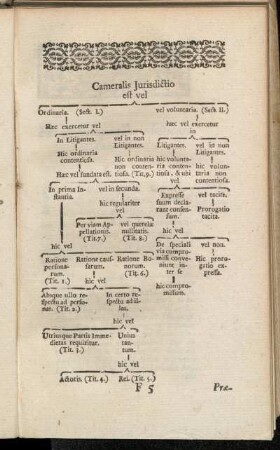 Cameralis Jurisdictio
est vel
Ordinaria. (Sect. I.) vel voluntaria. (Sect. II.)
Hæc exercetur vel hæc vel exercetur
in
in Litigantes. vel in non Litigantes. Litigantes. vel in non Litigantes.
Hic ordinaria contentiosa. Hic ordinaria non contentiosa. (Tit. 9.) hic voluntaria non contentiosa, & ubi vel hic voluntaria non contentiosa.
Hæc vel fundata est.
in Prima Instantia. vel in secunda. Expressè suum declarant consensum. vel tacitè.
hic regulariter vel Prorogatio tacita.
Per viam Appellationis. (Tit. 7.) vel querelæ nullitatis. (Tit. 8.)
hic vel De speciali compromissi conveniunt inter se vel non.
Ratione personarum. (Tit. 1.) Ratione causarum. Ratione Bonorum. (Tit. 6.) Hic prorogatio expressa.
hic vel hic compromissum.
Absque ullo respectu ad personas. (Tit. 2.) In certo respectu ad illas.
hic vel
Utriusque Partis Immedietas requiritur. (Tit. 3.) Unius tantum.
hic vel
Actoris. (Tit. 4.) Rei. (Tit. 5.)
F 5 Præ-